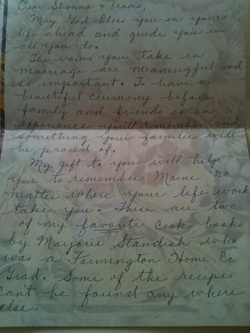 Dear Shonna & Travis,
May God bless you in your
life ahead and guide you in
all you do.
The vows you take in
marriage are meaningful and
so important. To have a
beautiful ceremony before
family and friends is an
experience you'll remember and
something your families will
be proud of.
My gift to you will help
you to remember Maine no
matter where your life's work
takes you. These are two
of my favorite cook books
by Marjorie Standish who
was a Farmington Home Ec
Grad. Some of the recipes
can't be found any where
else.